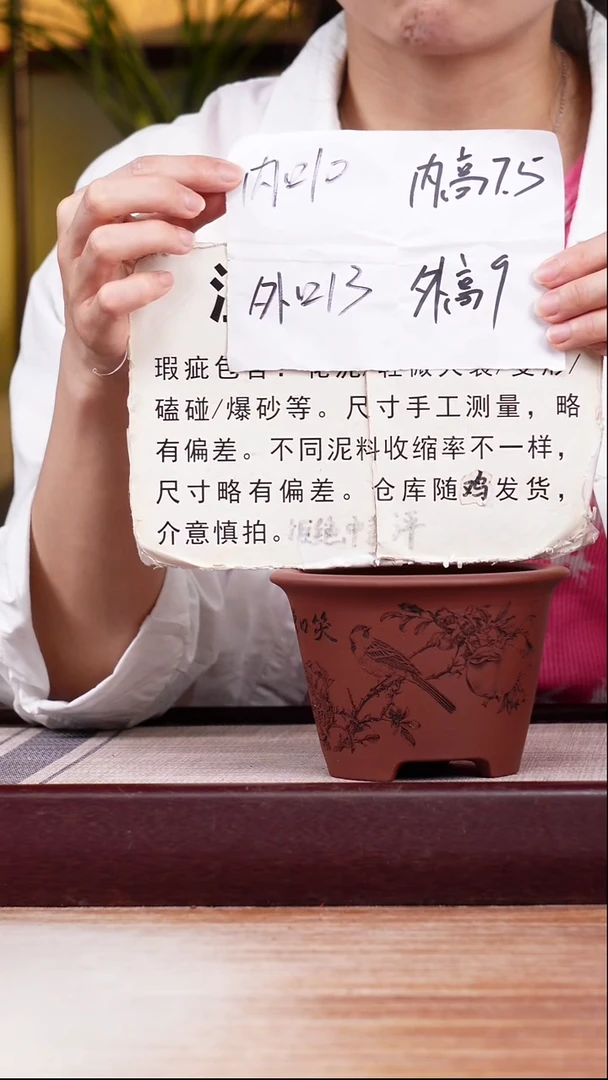 内口10 内高7.5
外口13 外高9
瑕疵包含：
磕碰/爆砂等。尺寸手工测量，略
有偏差。不同泥料收缩率不一样，
尺寸略有偏差。仓库随鸡发货，
介意慎拍。